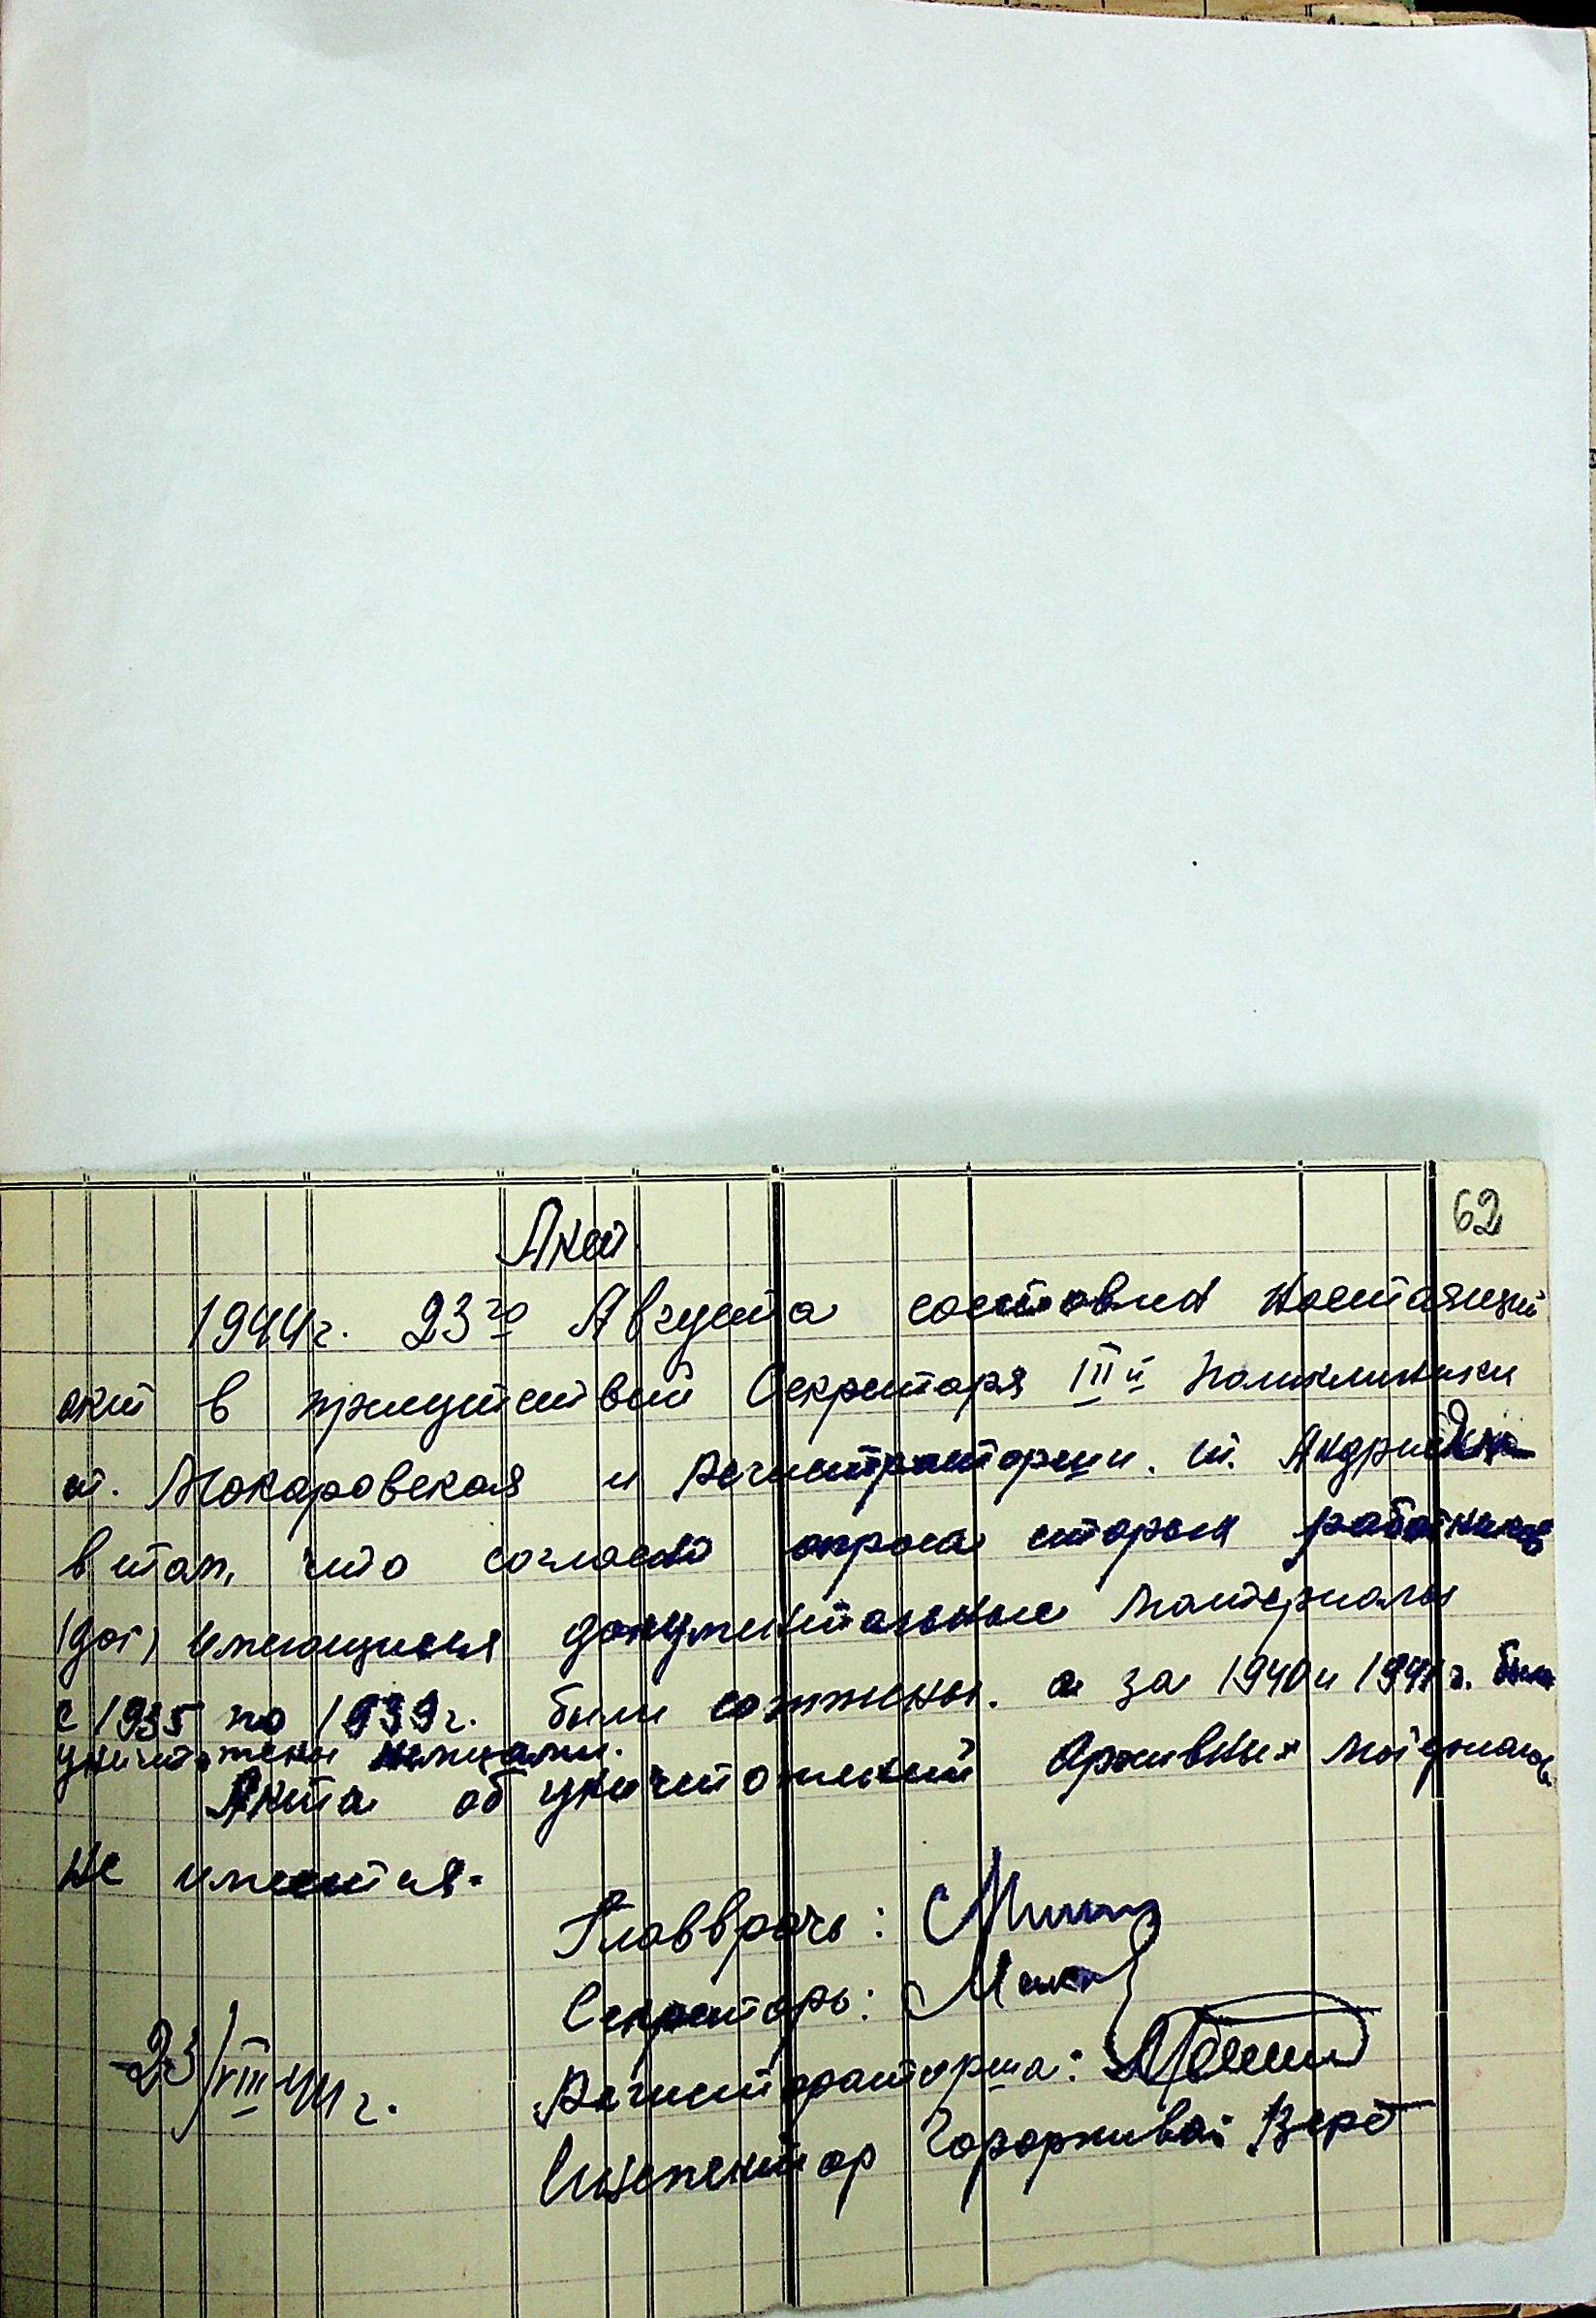 62
Акт
1944г. 23го Августа составил настаящий
акт в присутствии Секретаря IIIй Поликлиники
т. Макаровская и Регистраторши. т.
в том, что согласно опроса старых работников
имеющиеся документальные материалы
с 1935 по 1939г. были сожжены. а за 1940 и 1941г. были
уничтожены немцами.
Акта об уничтожений Архивных
не имеется.
Главврачь:
Секретарь: Мак
23/VIII-44 г.
Регистраторша:
Инспектор Горархива: